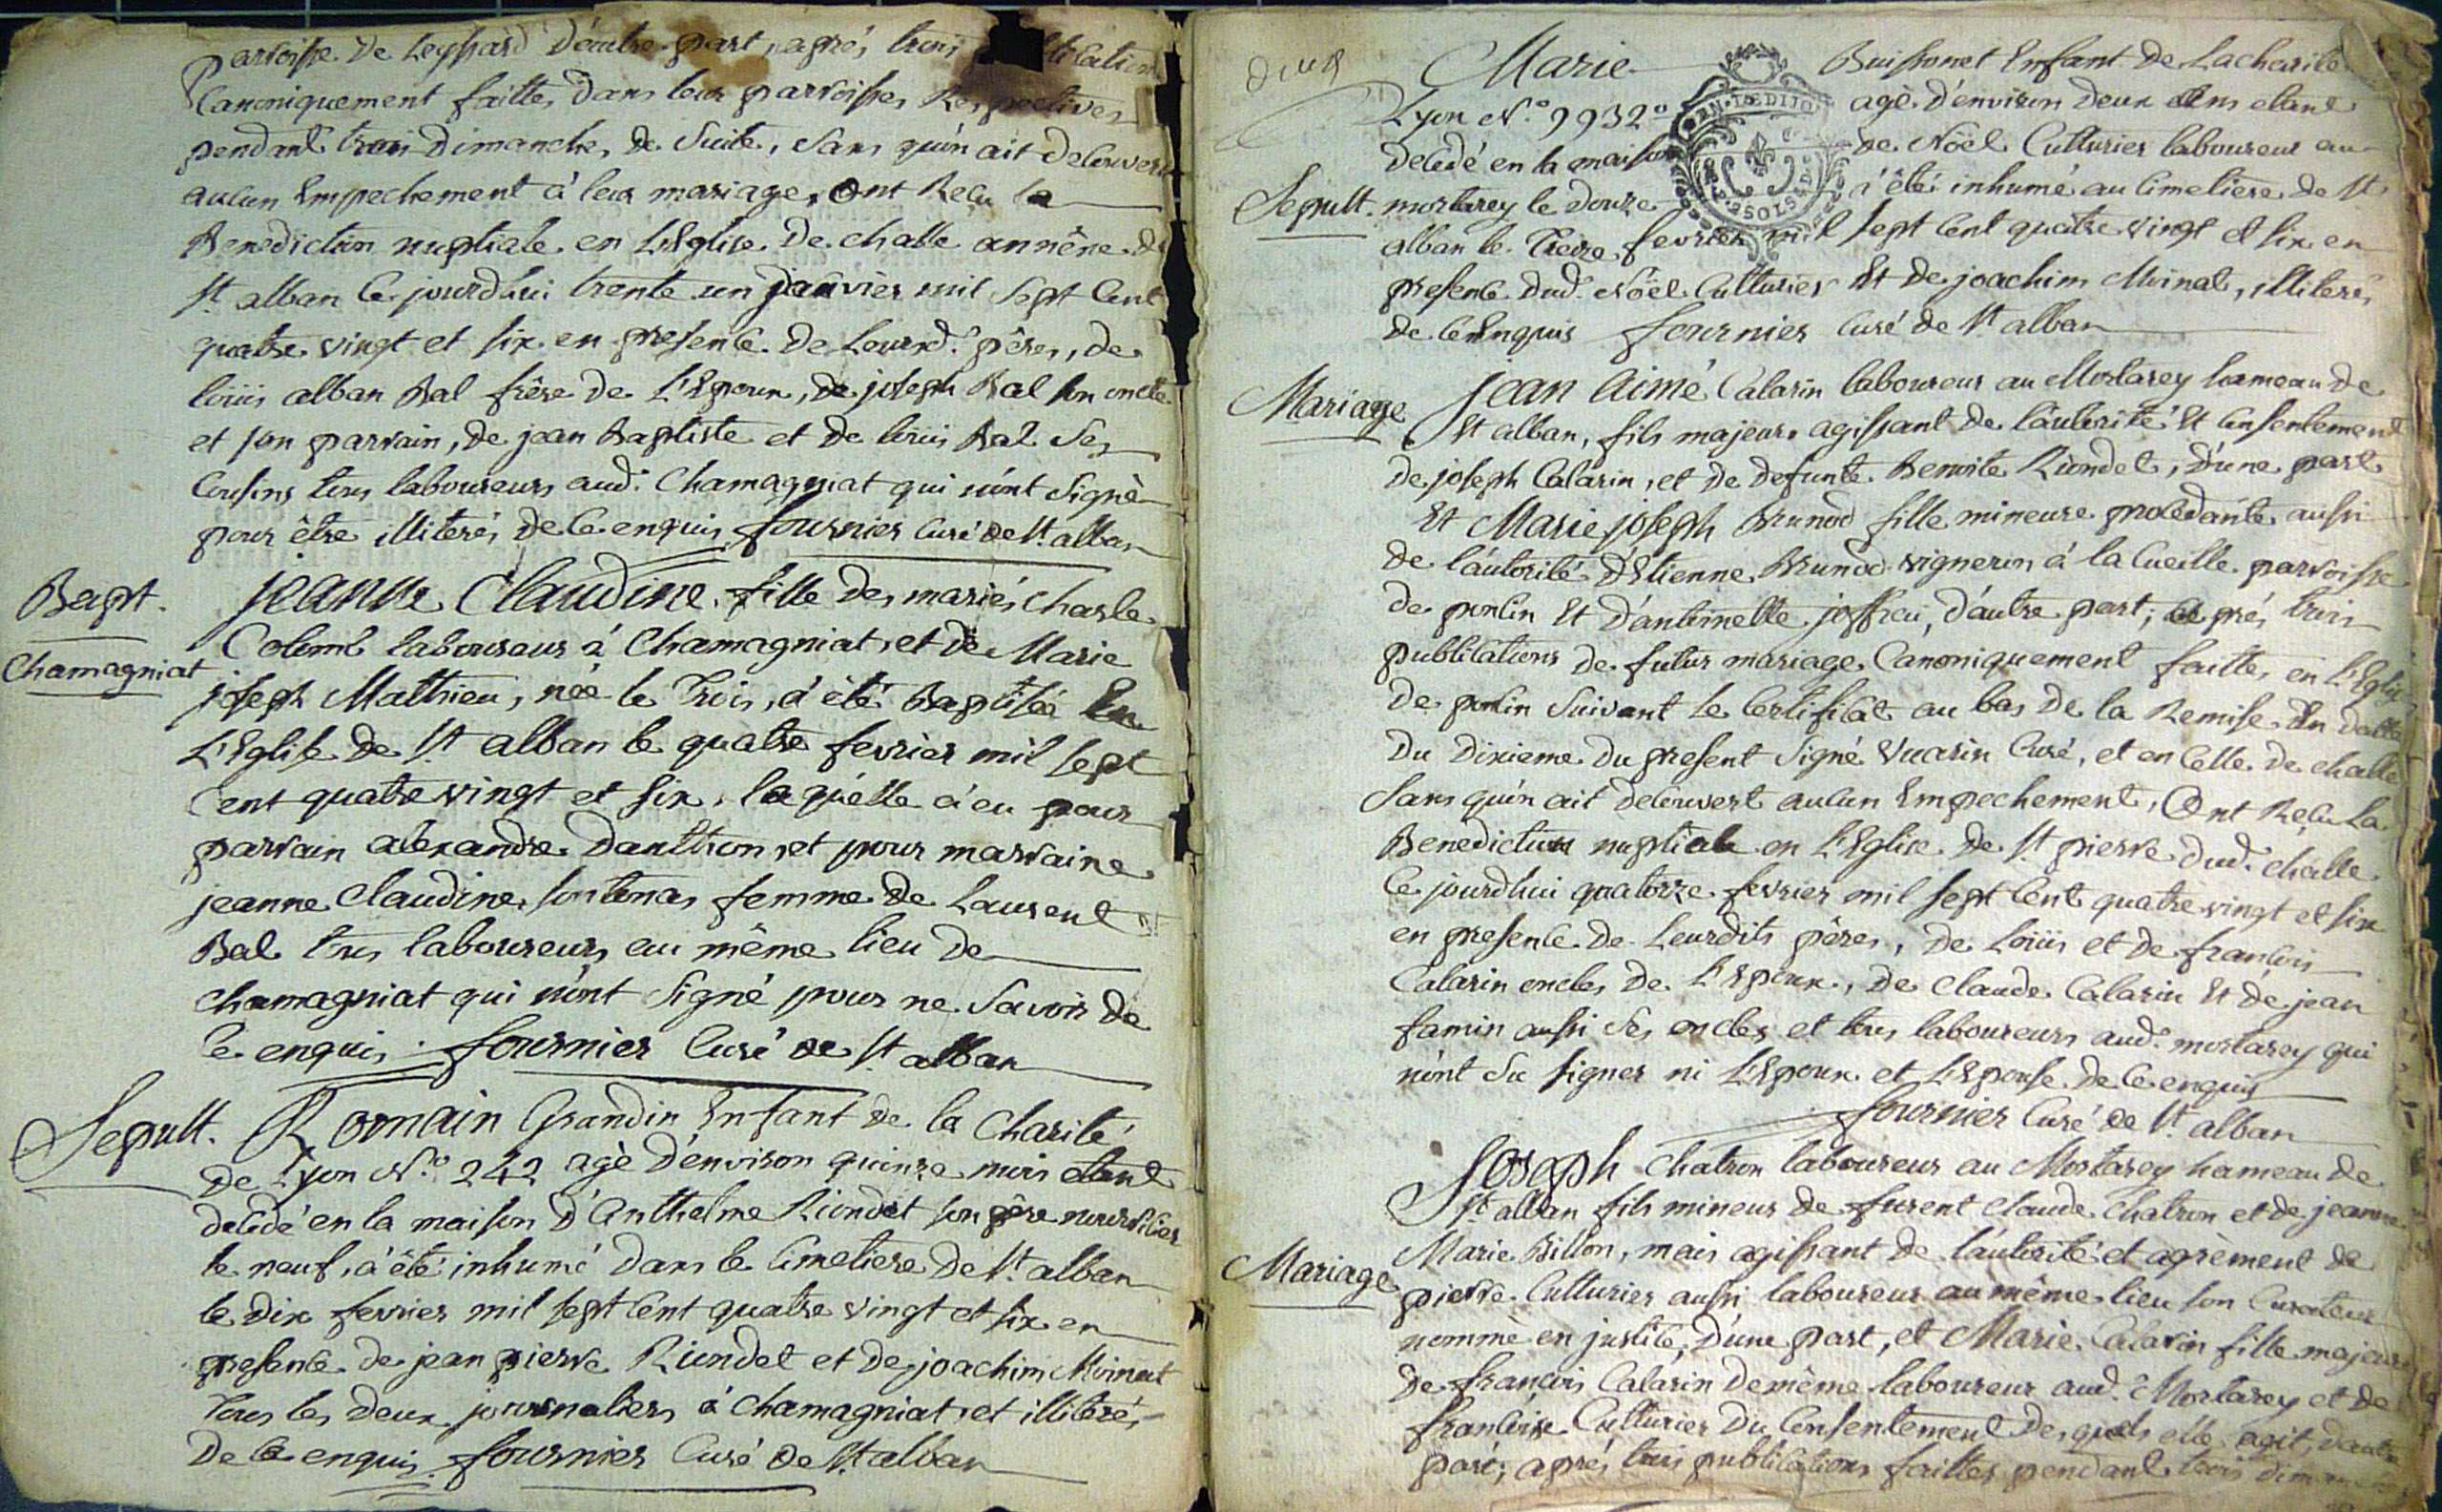 parroisse de Leyssard d'autre part, aprés trois publications
Canoniquement faittes dans leurs parroisses Respectives
pendant trois Dimanches de Suite, Sans qu'on ait decouvert
aucun Empechement à leur mariage, Ont Reçu la
Benediction nuptiale en L'Eglise de challe annéxe de
St alban ce jourdhui trente un janvier mil Sept Cent
quatre vingt et six en presence de Leursd. pères, de
loüis alban Bal frère de L'Epoux, de joseph Bal son oncle
et son parrain, de jean Baptiste et de loüis Bal Ses
Cousins tous laboureurs aud. Chamagniat qui n'ont Signé
pour être illiterés de ce enquis fournier Curé de St. alban
Bapt.
Chamagniat
jeanne Claudine fille des mariés Charle
Colomb laboureur à Chamagniat, et de Marie
joseph Matthieu, née le Trois, a été Baptisée En
L'Eglise de St alban le quatre fevrier mil sept
Cent quatre vingt et six, laquelle a eu pour
parrain alexandre Danthon, et pour marraine
jeanne Claudine fontenas femme de Laurent
Bal tous laboureurs au même lieu de
chamagniat qui n'ont Signé pour ne Savoir de
ce enquis. fournier Curé de St alban
Sepult.
Romain Grandin Enfant de la Charité
de Lyon N.o 242 agé d'environ quinze mois etant
decedé en la maison d'Anthelme Riondet son père nourricier
le neuf, a été inhumé dans le Cimetiere de St. alban
le dix fevrier mil sept Cent quatre vingt et six en
presence de jean pierre Riondet et de joachim Moinat
tous les deux journaliers à Chamagniat, et illiterés
de ce enquis. fournier Curé de St. alban
deux
Marie Buissonet Enfant de Lacharité
Lyon N.o 9932o agé d'environ deux Ans etant
decedé en la maison de Noël Culturier laboureur au
Sepult.
mortarey le douze a été inhumé au Cimetiere de St
alban le Treize fevrier mil sept Cent quatre vingt et six en
presence dud. Noël Culturier Et de joachim Moinat, illiterés
de ce Enquis fournier Curé de St alban
Mariage
jean aimé Calarin laboureur au Mortarey hameau de
St alban, fils majeur agissant de l'autorité Et Consentement
de joseph Calarin, et de defunte Benoite Riondet, d'une part
Et Marie joseph Brunod fille mineure procedante aussi
de l'autorité d'Etienne Brunod vigneron à la Cueille parroisse
de poncin Et d'antoinette joffrei, d'autre part; aprés trois
publications de futur mariage Canoniquement faittes en L'Eglise
de poncin Suivant le Certificat au bas de la Remise En datte
du dixieme du present Signé Vuarin Curé, et en Celle de challe
Sans qu'on ait decouvert aucun Empechement, Ont Reçu La
Benediction nuptiale en L'Eglise de St. pierre dud. challe
ce jourdhui quatorze fevrier mil sept Cent quatre vingt et six
en presence de Leursdits pères, de Loüis et de francois
Calarin oncles de L'Epoux, de Claude Calarin Et de jean
famin aussi Ses oncles et tous laboureurs aud. mortarey qui
n'ont Su signer ni L'Epoux et L'Epouse de ce enquis
fournier Curé de St. alban
Mariage
Joseph Chatron laboureur au Mortarey hameau de
St alban fils mineur de furent Claude Chatron et de jeanne
Marie Billon, mais agissant de l'autorité et agrèment de
pierre Culturier aussi laboureur au même lieu son Curateur
nommé en justice, d'une part, et Marie Calarin fille majeure
de françois Calarin de même laboureur aud. Mortarey et de
francoise Culturier du Consentement desquels elle agit, d'autre
part; aprés trois publications faittes pendant trois dimanches